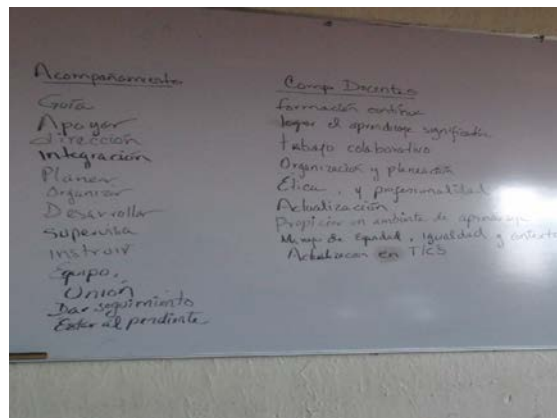 Acompañamiento
Guía
Apoyar
dirección
Integración
Planear
Organizar
Desarrollar
supervisa
instruir
Equipo,
Unión
Dar seguimiento
Estar al pendiente
Comp Docentes
formación continua
lograr el aprendizaje significativo
trabajo colaborativo
Organización y planeación
Ética, y profesionalidad
Actualización
Propiciar un ambiente de aprendizaje
de Equidad, igualdad y
en TICS